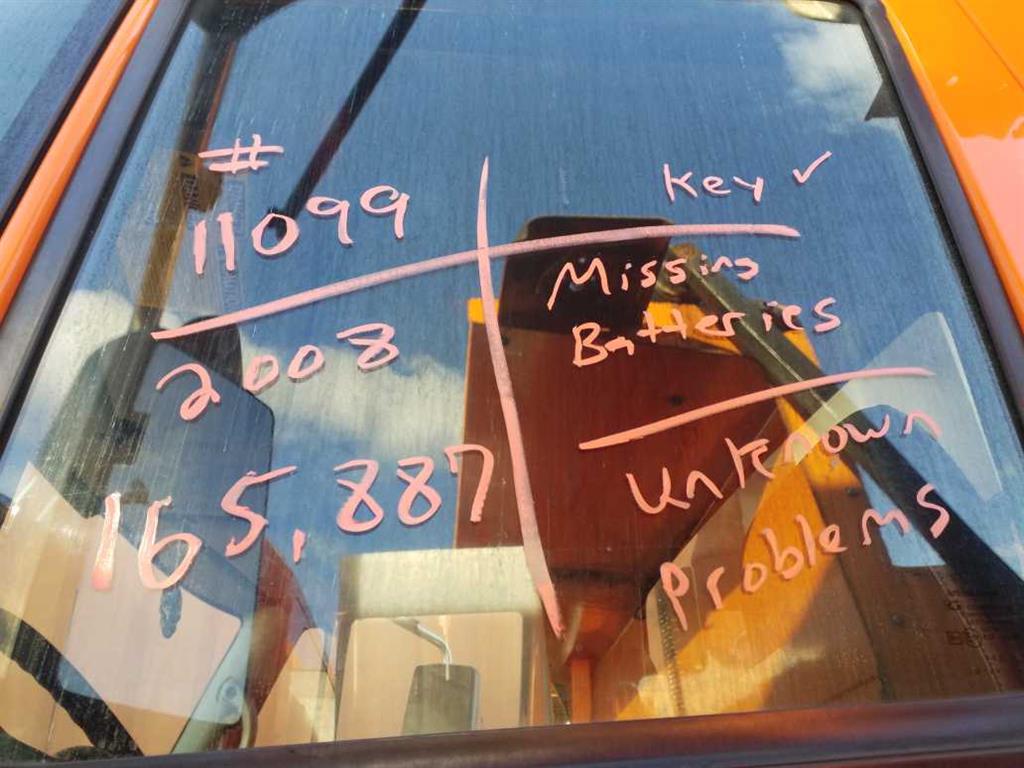 #
11099
2008
165,887
Key ✓
Missing
Batteries
Unknown
Problems